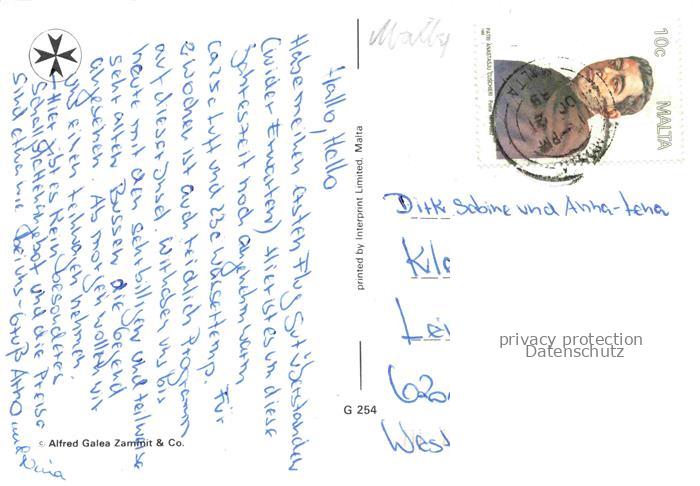 Hallo, Hallo
Habe meinen ersten Flug gut überstanden
(wider Erwarten) Hier ist es um diese
Jahreszeit noch angenehm warm
Luft und 23°C Wassertemp. Für
2 Wochen ist auch reichlich Programm
auf dieser Insel. Wir haben uns bis
heute mit den sehr billigen und teilweise
sehr alten Bussen die Gegend
angesehen. Ab morgen wollen wir
uns einen Leihwagen nehmen.
Hier ist es kein besonderes
und die Preise
sind etwa wie bei uns. Gruß Arno und
Nina
Malta
10c
MALTA
Dirk Sabine und Anna-Lena
Kl
Lei
620
West
privacy protection
Datenschutz
printed by Interprint Limited, Malta
G 254
© Alfred Galea Zammit & Co.